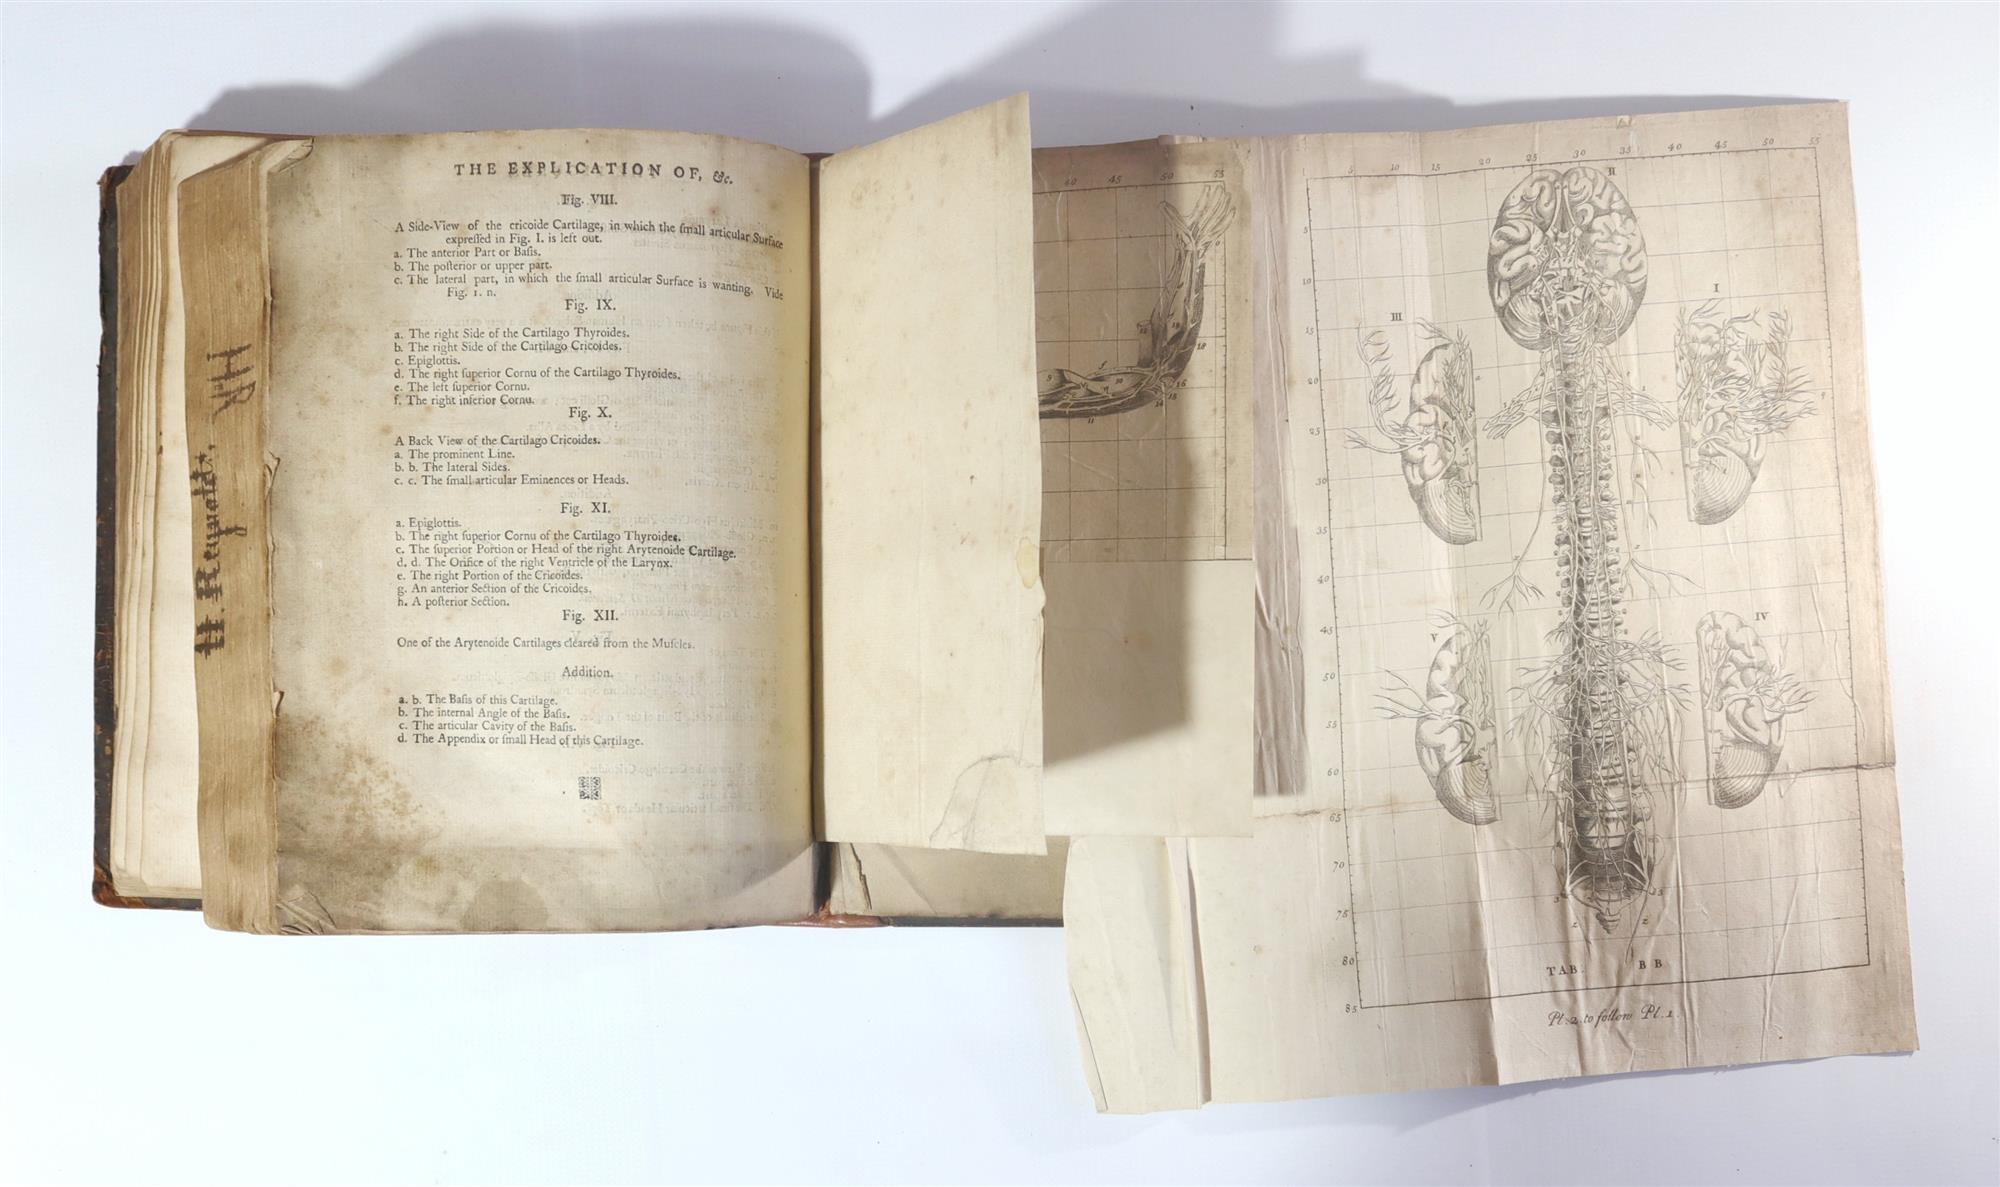 THE EXPLICATION OF, &c.
Fig. VIII.
A Side-View of the cricoide Cartilage, in which the ſmall articular Surface
expreſſed in Fig. I. is left out.
a. The anterior Part or Baſis.
b. The poſterior or upper part.
c. The lateral part, in which the ſmall articular Surface is wanting. Vide
Fig. 1. n.
Fig. IX.
a. The right Side of the Cartilago Thyroides.
b. The right Side of the Cartilago Cricoides.
c. Epiglottis.
d. The right ſuperior Cornu of the Cartilago Thyroides.
e. The left ſuperior Cornu.
f. The right inferior Cornu.
Fig. X.
A Back View of the Cartilago Cricoides.
a. The prominent Line.
b. b. The lateral Sides.
c. c. The ſmall articular Eminences or Heads.
Fig. XI.
a. Epiglottis.
b. The right ſuperior Cornu of the Cartilago Thyroides.
c. The ſuperior Portion or Head of the right Arytenoide Cartilage.
d. d. The Orifice of the right Ventricle of the Larynx.
e. The right Portion of the Cricoides.
g. An anterior Section of the Cricoides.
h. A poſterior Section.
Fig. XII.
One of the Arytenoide Cartilages cleared from the Muſcles.
Addition.
a. b. The Baſis of this Cartilage.
b. The internal Angle of the Baſis.
c. The articular Cavity of the Baſis.
d. The Appendix or ſmall Head of this Cartilage.
HR
40 45 50 55
9 10 11 14 15 16 18
1 5 10 15 20 25 30 35 40 45 50 55
5
10
15
20
25
30
35
40
45
50
55
60
65
70
75
80
85
II
I
III
IV
V
TAB. BB
Pl. 2. to follow Pl. 1.